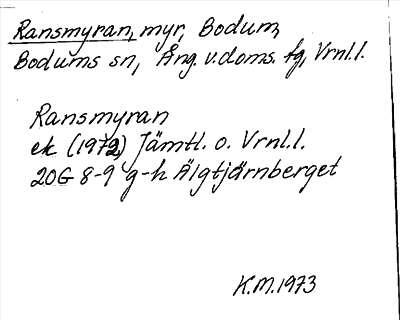 Ransmyran, myr, Bodum,
Bodums sn, Ång. v. doms. fg, Vrnl.l.
Ransmyran
ek (1972) Jämtl. o. Vrnl.l.
20G 8-9 g-h Älgtjärnberget
K.M. 1973